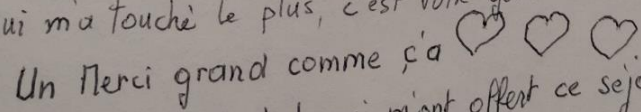 ui m'a touché le plus, c'est
Un Merci grand comme ç'a ♡ ♡ ♡
m'ont offert ce